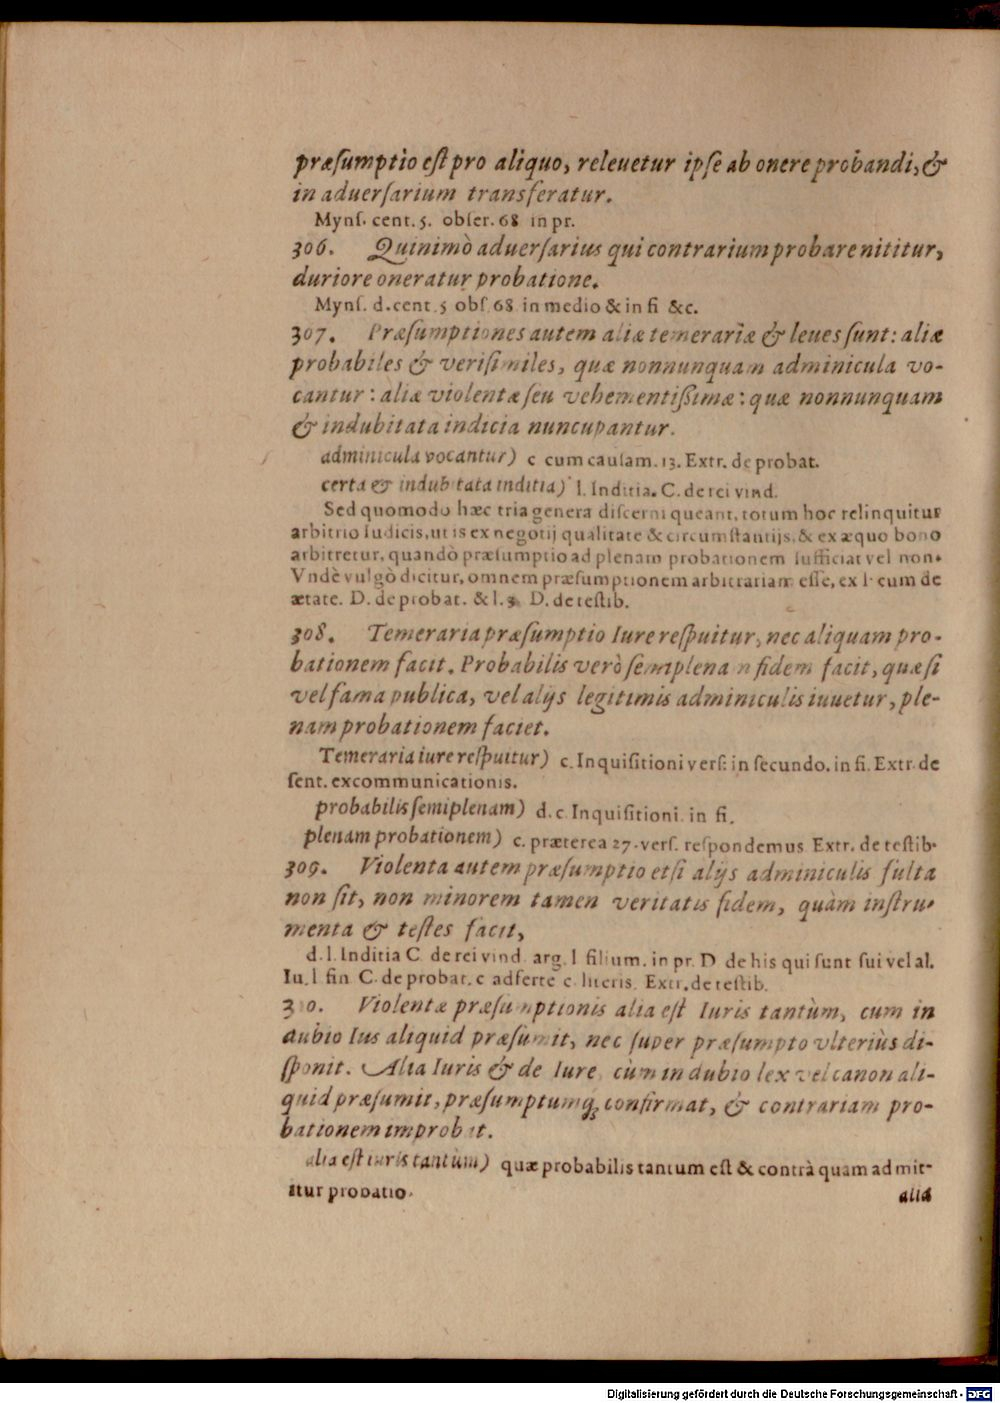 præsumptio est pro aliquo, releuetur ipse ab onere probandi, &
in aduersarium transferatur.
Mynſ. cent. 5. obſer. 68 in pr.
306. Quinimò aduerſarius qui contrarium probare nititur,
duriore oneratur probatione.
Mynſ. d. cent. 5 obſ. 68 in medio & in fi &c.
307. Præſumptiones autem aliæ temerariæ & leues ſunt: aliæ
probabiles & veriſimiles, quæ nonnunquam adminicula vo-
cantur: aliæ violentæ ſeu vehementiſſimæ: quæ nonnunquam
& indubitata indicia nuncupantur.
adminicula vocantur) c cum cauſam. 13. Extr. de probat.
certa & indubitata inditia) l. Inditia. C. de rei vind.
Sed quomodo hæc tria genera diſcerni queant, totum hoc relinquitur
arbitrio Iudicis, ut is ex negotij qualitate & circumſtantijs, & ex æquo bono
arbitretur, quandò præſumptio ad plenam probationem ſufficiat vel non.
Vndè vulgò dicitur, omnem præſumptionem arbitrariam eſſe, ex l. cum de
ætate. D. de probat. & l. 3. D. de teſtib.
308. Temeraria præſumptio Iure reſpuitur, nec aliquam pro-
bationem facit. Probabilis verò ſemiplenam fidem facit, quæ ſi
vel fama publica, vel alijs legitimis adminiculis iuuetur, ple-
nam probationem faciet.
Temeraria iure reſpuitur) c. Inquiſitioni verſ: in ſecundo. in fi. Extr. de
ſent. excommunicationis.
probabilis ſemiplenam) d. c. Inquiſitioni. in fi.
plenam probationem) c. præterea 27. verſ. reſpondemus Extr. de teſtib.
309. Violenta autem præſumptio etſi alijs adminiculis fulta
non ſit, non minorem tamen veritatis fidem, quàm inſtru-
menta & teſtes facit,
d. l. Inditia C. de rei vind. arg. l filium. in pr. D de his qui ſunt ſui vel al.
Iu. l fin C. de probat. c adferte c. literis. Extr. de teſtib.
310. Violentæ præſumptionis alia eſt Iuris tantùm, cum in
dubio Ius aliquid præſumit, nec ſuper præſumpto vlteriùs di-
ſponit. Alia Iuris & de Iure, cùm in dubio lex vel canon ali-
quid præſumit, præſumptumq; confirmat, & contrariam pro-
bationem improbat.
alia eſt iuris tantùm) quæ probabilis tantum eſt & contrà quam admit-
itur probatio.
alia
Digitalisierung gefördert durch die Deutsche Forschungsgemeinschaft - DFG